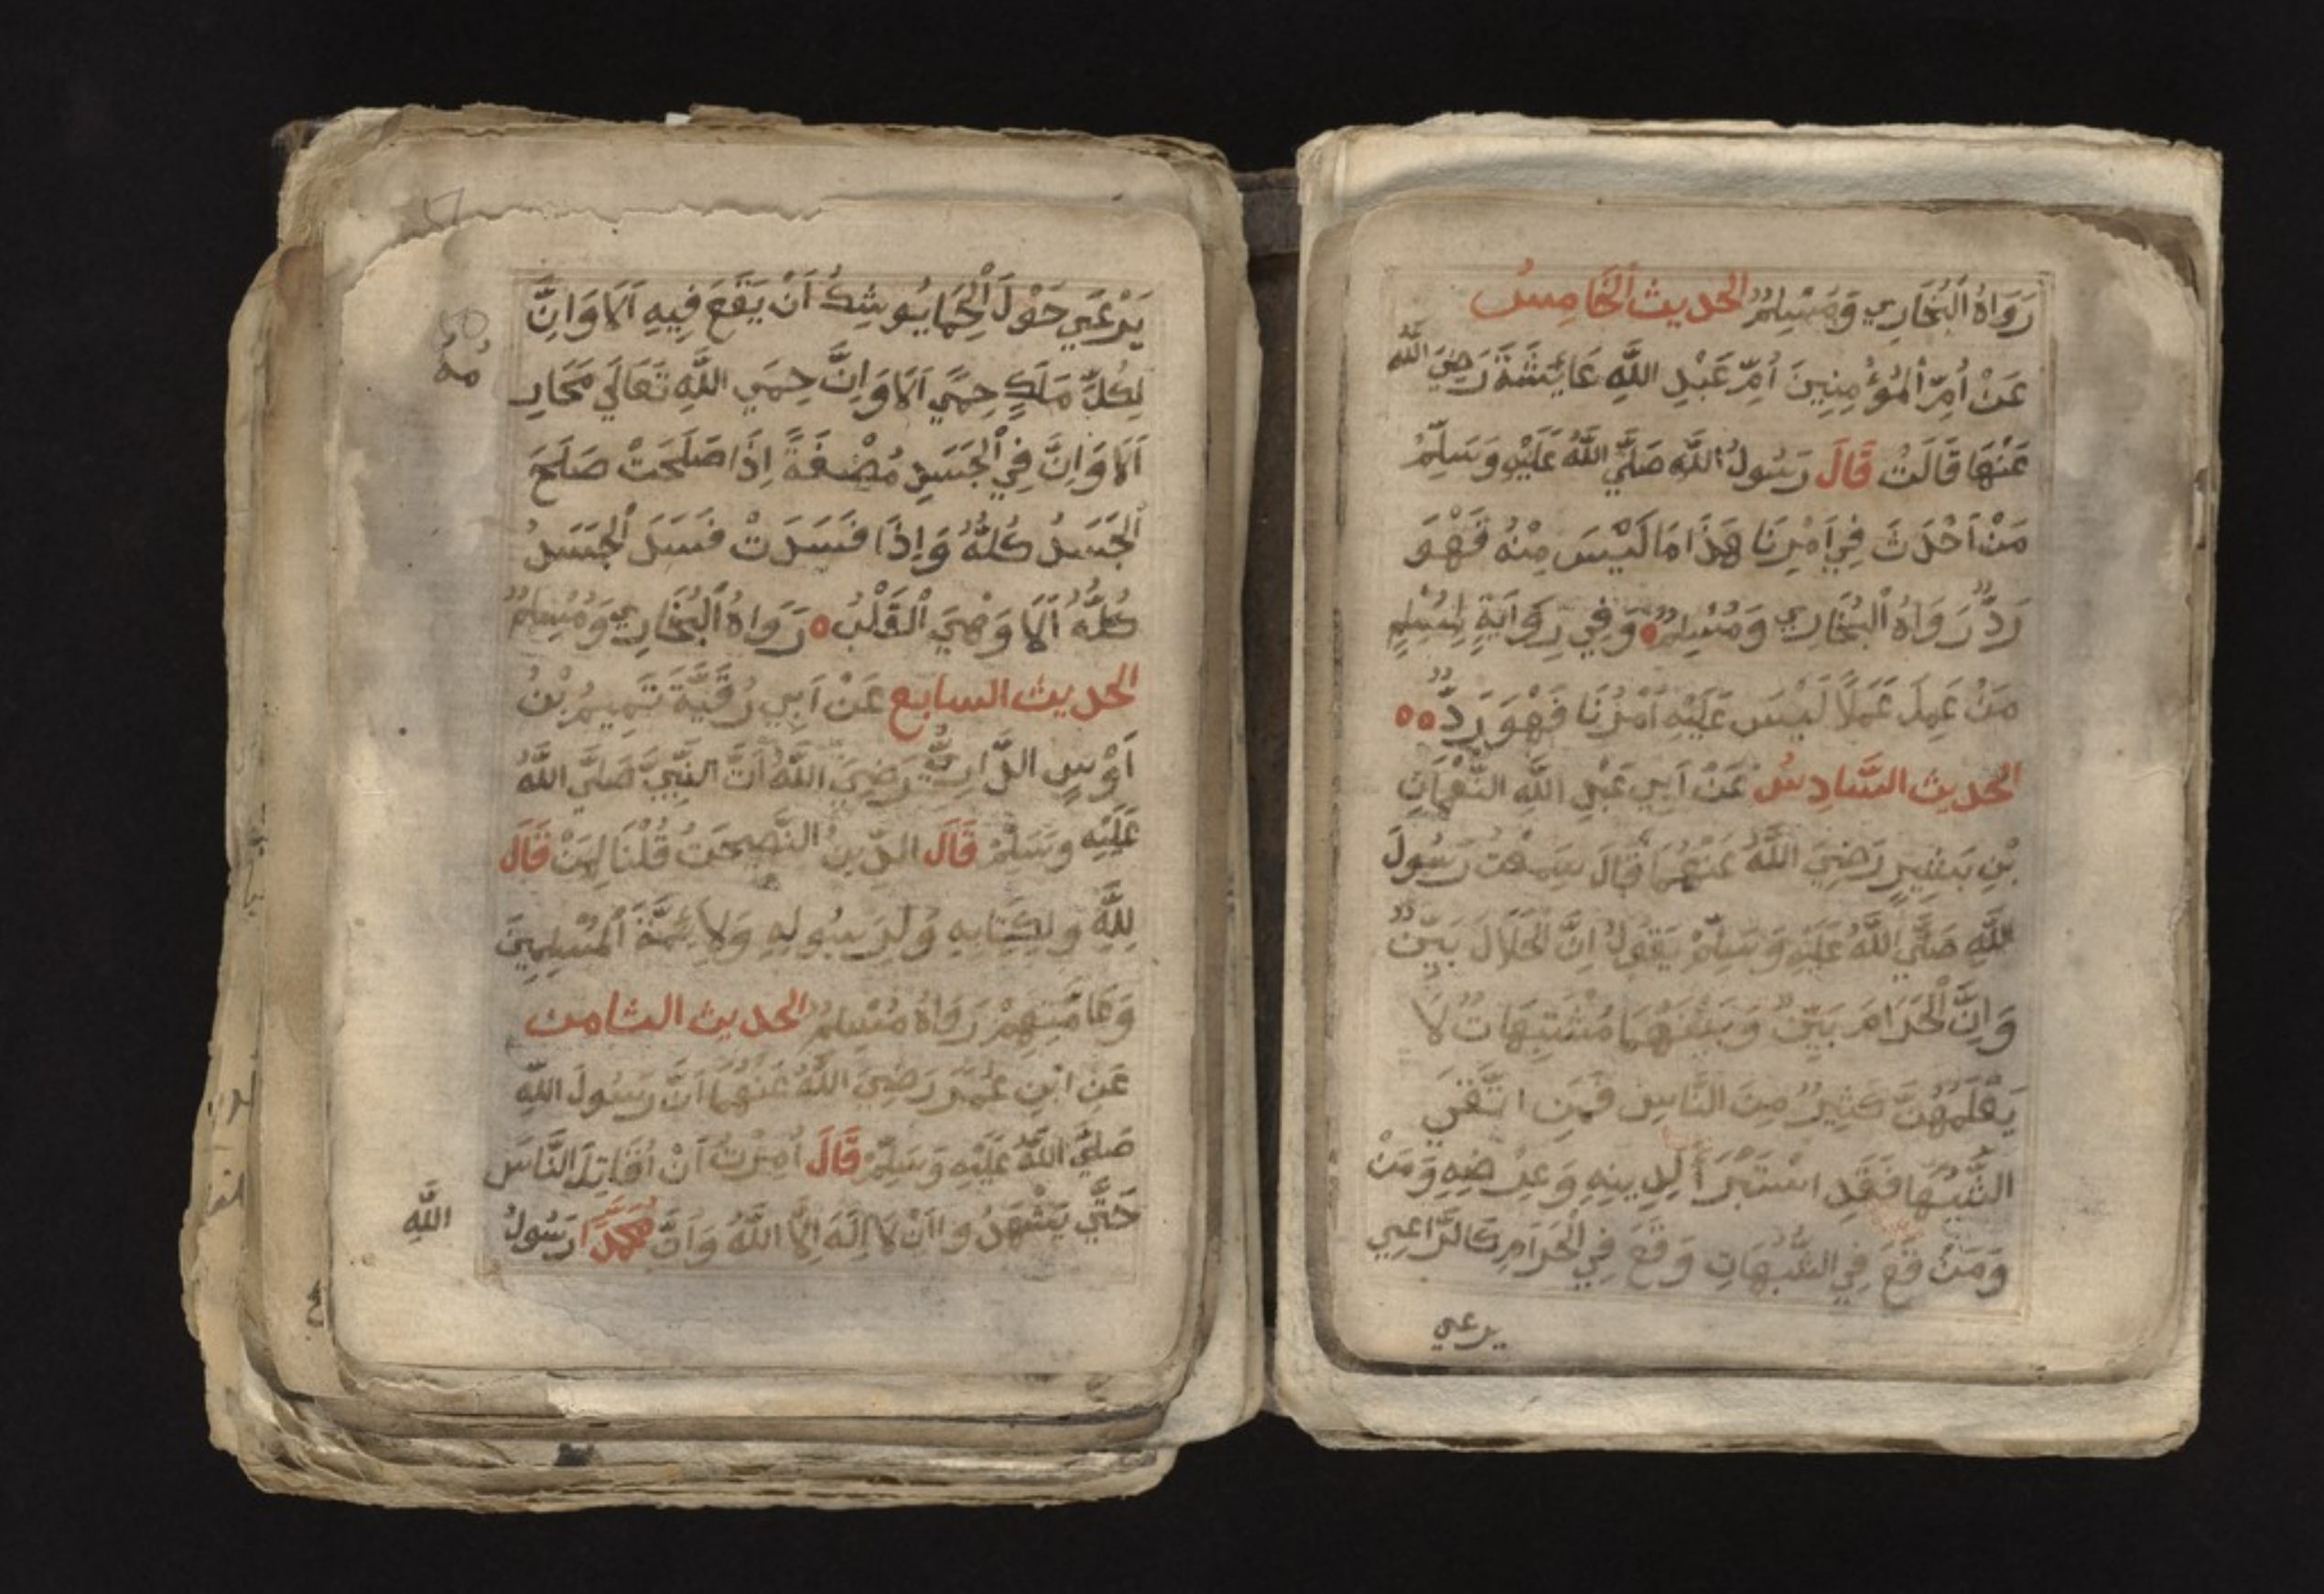 رَوَاهُ اَلْبُخَارِي وَمُسْلِمٌ الحديث الْخَامِسُ
عَنْ اُمِّ اْلمُؤْمِنِينَ اُمِّ عَبْدِ اللَّهِ عَائِشَةَ رَضِيَ اللَّهُ
عَنْهَا قَالَتْ قَالَ رَسُولُ اللَّهِ صَلَّي اللَّهُ عَلَيْهِ وَسَلَّمْ
مَنْ اَحْدَثَ فِي اَمْرِنَا هَذَا مَا لَيْسَ مِنْهُ فَهْوَ
رَدٌّ رَوَاهُ اْلبُخَارِي وَمُسْلِمٌ ٥ وَفِي رِوَايَةٍ لِمُسْلِمٍ
مَنْ عَمِلَ عَمَلًا لَيْسَ عَلَيْهِ اَمْرُنَا فَهْوَ رَدٌّ ٥٥
الحديث السَّادِسُ عَنْ اَبِي عَبْدِ اللَّهِ النُّعْمَانِ
بْنِ بَشِيرٍ رَضِيَ اللَّهُ عَنْهُمَا قَالَ سَمِعْتُ رَسُولَ
اللَّهِ صَلَّي اللَّهُ عَلَيْهِ وَسَلَّمْ يَقُولُ اِنَّ الْحَلَالَ بَيِّنٌ
وَاِنَّ الْحَرَامَ بَيِّنٌ وَبَيْنَهُمَا مُشْتَبِهَاتٌ لَا
يَعْلَمُهُنَّ كَثِيرٌ مِنَ النَّاسِ فَمَنِ اتَّقَي
الشُّبُهَا فَقَدِ اسْتَبْرَأَ لِدِينِهِ وَعِرْضِهِ وَمَنْ
وَمَنْ قَعَ فِي الشُّبُهَاتِ وَقَعَ فِي الْحَرَامِ كَالرَّاعِي
يرعي
يَرْعَي حَوْلَ اَلْحِمَا يُوشِكُ اَنْ يَقَعَ فِيهِ اَلَا وَاِنَّ
لِكُلِّ مَلَكٍ حِمًي اَلَا وَاِنَّ حِمَي اللَّهِ تَعَالَي مَحَارِ
مُهُ
اَلَا وَاِنَّ فِي اْلجَسَدِ مُضْغَةً اِذَا صَلَحَتْ صَلَحَ
اْلجَسَدُ كُلُّهُ وَاِذَا فَسَدَتْ فَسَدَ اْلجَسَدُ
كُلُّهُ اَلَا وَهْيَ اْلقَلْبُ ٥ رَوَاهُ اَلْبُخَارِي وَمُسْلِمٌ
الحديث السابع عَنْ اَبِي رُقَيَّةَ تَمِيمِ بْنُ
اَوْسٍ الدَّارِيِّ رَضِيَ اللَّهُ اَنَّ النَّبِيَّ صَلَّيَ اللَّهُ
عَلَيْهِ وَسَلَّمْ قَالَ الدِّينُ النَّصِحَتُ قُلْنَا لِمَنْ قَالَ
لِلَّهِ وَلِكِتَابِهِ وَلِرَسُولِهِ وَلِاَئِمَّةِ اْلمُسْلِمِينَ
وَعَامَّتِهِمْ رَوَاهُ مُسْلِمٌ الحديث الثامن
عَنِ ابْنِ عُمَرَ رَضِيَ اللَّهُ عَنْهُمَا اَنَّ رَسُولَ اللَّهِ
صَلَّيَ اللَّهُ عَلَيْهِ وَسَلَّمْ قَالَ اُمِرْتُ اَنْ اُقَاتِلَ النَّاسَ
حَتَّي يَشْهَدُوا اَنْ لَا اِلَهَ اِلَّا اللَّهُ وَاَنَّ مُحَمَّدًا رَسُولُ
اللَّهِ